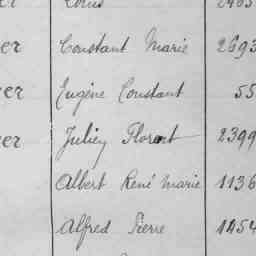 er Louis 2463
er Constant Marie 2693
er Eugène Constant 55
er Julien Florent 2399
Albert René Marie 1136
Alfred Pierre 1454